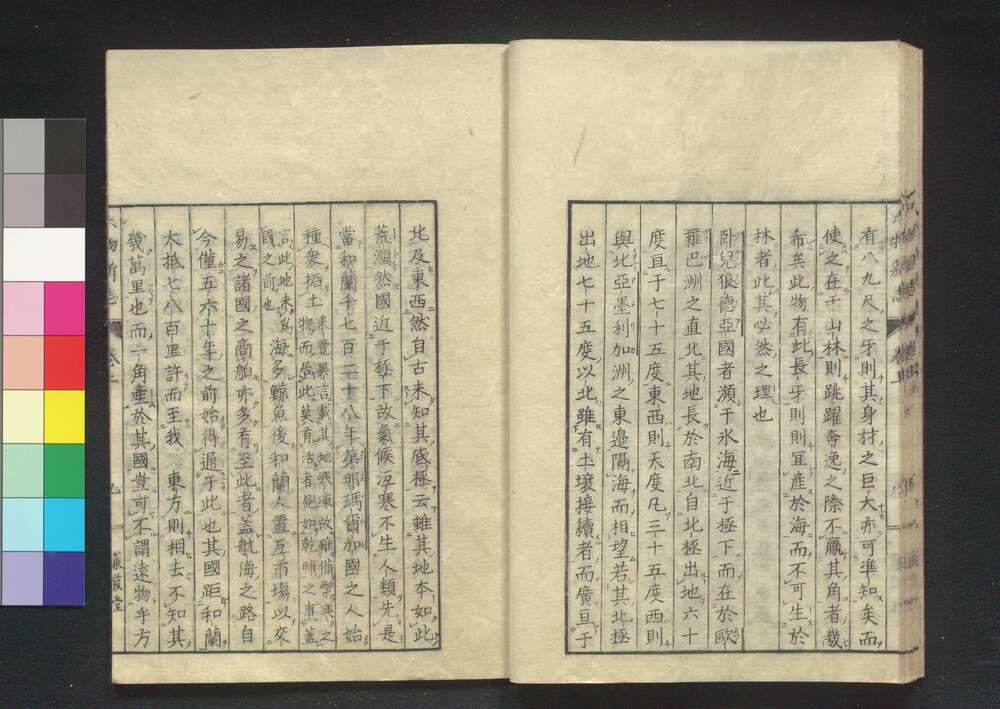 有八九尺之牙則其身材之巨大亦可準知矣而
使之在于山林則跳躍奔逸之際不羸其角者幾
希矣此物有此長牙則宜產於海而不可生於
林者此其必然之理也
臥兒狼德亞國者瀕于氷海近于極下而在於歐
羅巴洲之直北其地長於南北自北極出地六十
度亘于七十五度東西則天度凡三十五度西則
與北亞墨利加洲之東邉隔海而相望若其北極
出地七十五度以北雖有土壤接續者而廣亘于
北及東西然自古未知其底極云雖其地本如此
荒濵然國近于極下故氣候沍寒不生人類先是
當和蘭千七百二十八年第那瑪爾加國之人始
種衆拓土
言此地未
國之前也
為海多鯨魚後和蘭人置互市塲以交
易之諸國之商舶亦多有至此者蓋航海之路自
今僅五六十年之前始得通于此也其國距和蘭
大抵七八百里許而至我 東方則相去不知其
幾萬里也而一角產於其國豈可不謂遠物乎方
六物新志 卷上 九 蒹葭堂